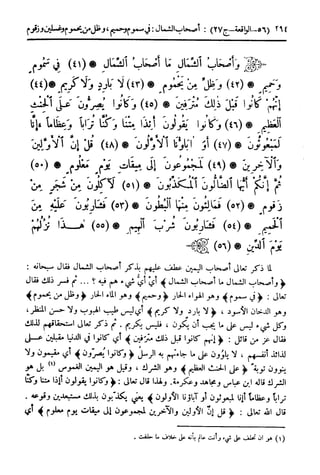 ٢٩٤ (٥٦ - الواقعة - ج٢٧) : أصحاب الشمال : في سموم وحميم ، وظل من يحموم وغسلين وزقوم
وَأَصْحَابُ الشِّمَالِ مَا أَصْحَابُ الشِّمَالِ * (٤١) فِي سَمُومٍ
وَحَمِيمٍ * (٤٢) وَظِلٍّ مِنْ يَحْمُومٍ * (٤٣) لَا بَارِدٍ وَلَا كَرِيمٍ * (٤٤)
إِنَّهُمْ كَانُوا قَبْلَ ذَلِكَ مُتْرَفِينَ * (٤٥) وَكَانُوا يُصِرُّونَ عَلَى الْحِنْثِ
الْعَظِيمِ * (٤٦) وَكَانُوا يَقُولُونَ أَئِذَا مِتْنَا وَكُنَّا تُرَابًا وَعِظَامًا ءَإِنَّا
لَمَبْعُوثُونَ * (٤٧) أَوَ آبَاؤُنَا الْأَوَّلُونَ * (٤٨) قُلْ إِنَّ الْأَوَّلِينَ
وَالْآخِرِينَ * (٤٩) لَمَجْمُوعُونَ إِلَى مِيقَاتِ يَوْمٍ مَعْلُومٍ * (٥٠)
ثُمَّ إِنَّكُمْ أَيُّهَا الضَّالُّونَ الْمُكَذِّبُونَ * (٥١) لَآكِلُونَ مِنْ شَجَرٍ مِنْ
زَقُّومٍ * (٥٢) فَمَالِئُونَ مِنْهَا الْبُطُونَ * (٥٣) فَشَارِبُونَ عَلَيْهِ مِنَ
الْحَمِيمِ * (٥٤) فَشَارِبُونَ شُرْبَ الْهِيمِ * (٥٥) هَذَا نُزُلُهُمْ
يَوْمَ الدِّينِ * (٥٦)
لما ذكر تعالى أصحاب اليمين عطف عليهم بذكر أصحاب الشمال فقال سبحانه :
﴿ وأصحاب الشمال ما أصحاب الشمال ﴾ أي أيُّ شيء هم فيه ؟ ... ثم فسر ذلك فقال
تعالى : ﴿ في سموم ﴾ وهو الهواء الحار ﴿ وحميم ﴾ وهو الماء الحار ﴿ وظل من يحموم ﴾
وهو الدخان الأسود ، ﴿ لا بارد ولا كريم ﴾ أي ليس طيب الهبوب ولا حسن المنظر ،
وكل شيء ليس على ما يجب أن يكون ، فليس بكريم . ثم ذكر تعالى استحقاقهم لذلك
فقال عز من قائل : ﴿ إنهم كانوا قبل ذلك مترفين ﴾ أي كانوا في الدنيا مقبلين على
لذائذ أنفسهم ، لا يلوون على ما جاءتهم به الرسل ﴿ وكانوا يُصرّون ﴾ أي مقيمون ولا
ينوون توبة ﴿ على الحنث العظيم ﴾ وهو الشرك ، وقيل هو اليمين الغموس (١) بل هو
الشرك قاله ابن عباس ومجاهد وعكرمة . ولهذا قال تعالى : ﴿ وكانوا يقولون أئذا متنا وكنا
تراباً وعظاماً أإنا لمبعوثون أو آباؤنا الأولون ﴾ يعني يكذبون بذلك مستبعدين وقوعه .
قال الله تعالى : ﴿ قل إنّ الأولين والآخرين لمجموعون إلى ميقات يوم معلوم ﴾ أي
(١) هو أن تحلف على شيء وأنت عالم بأنه على خلاف ما حلفت .